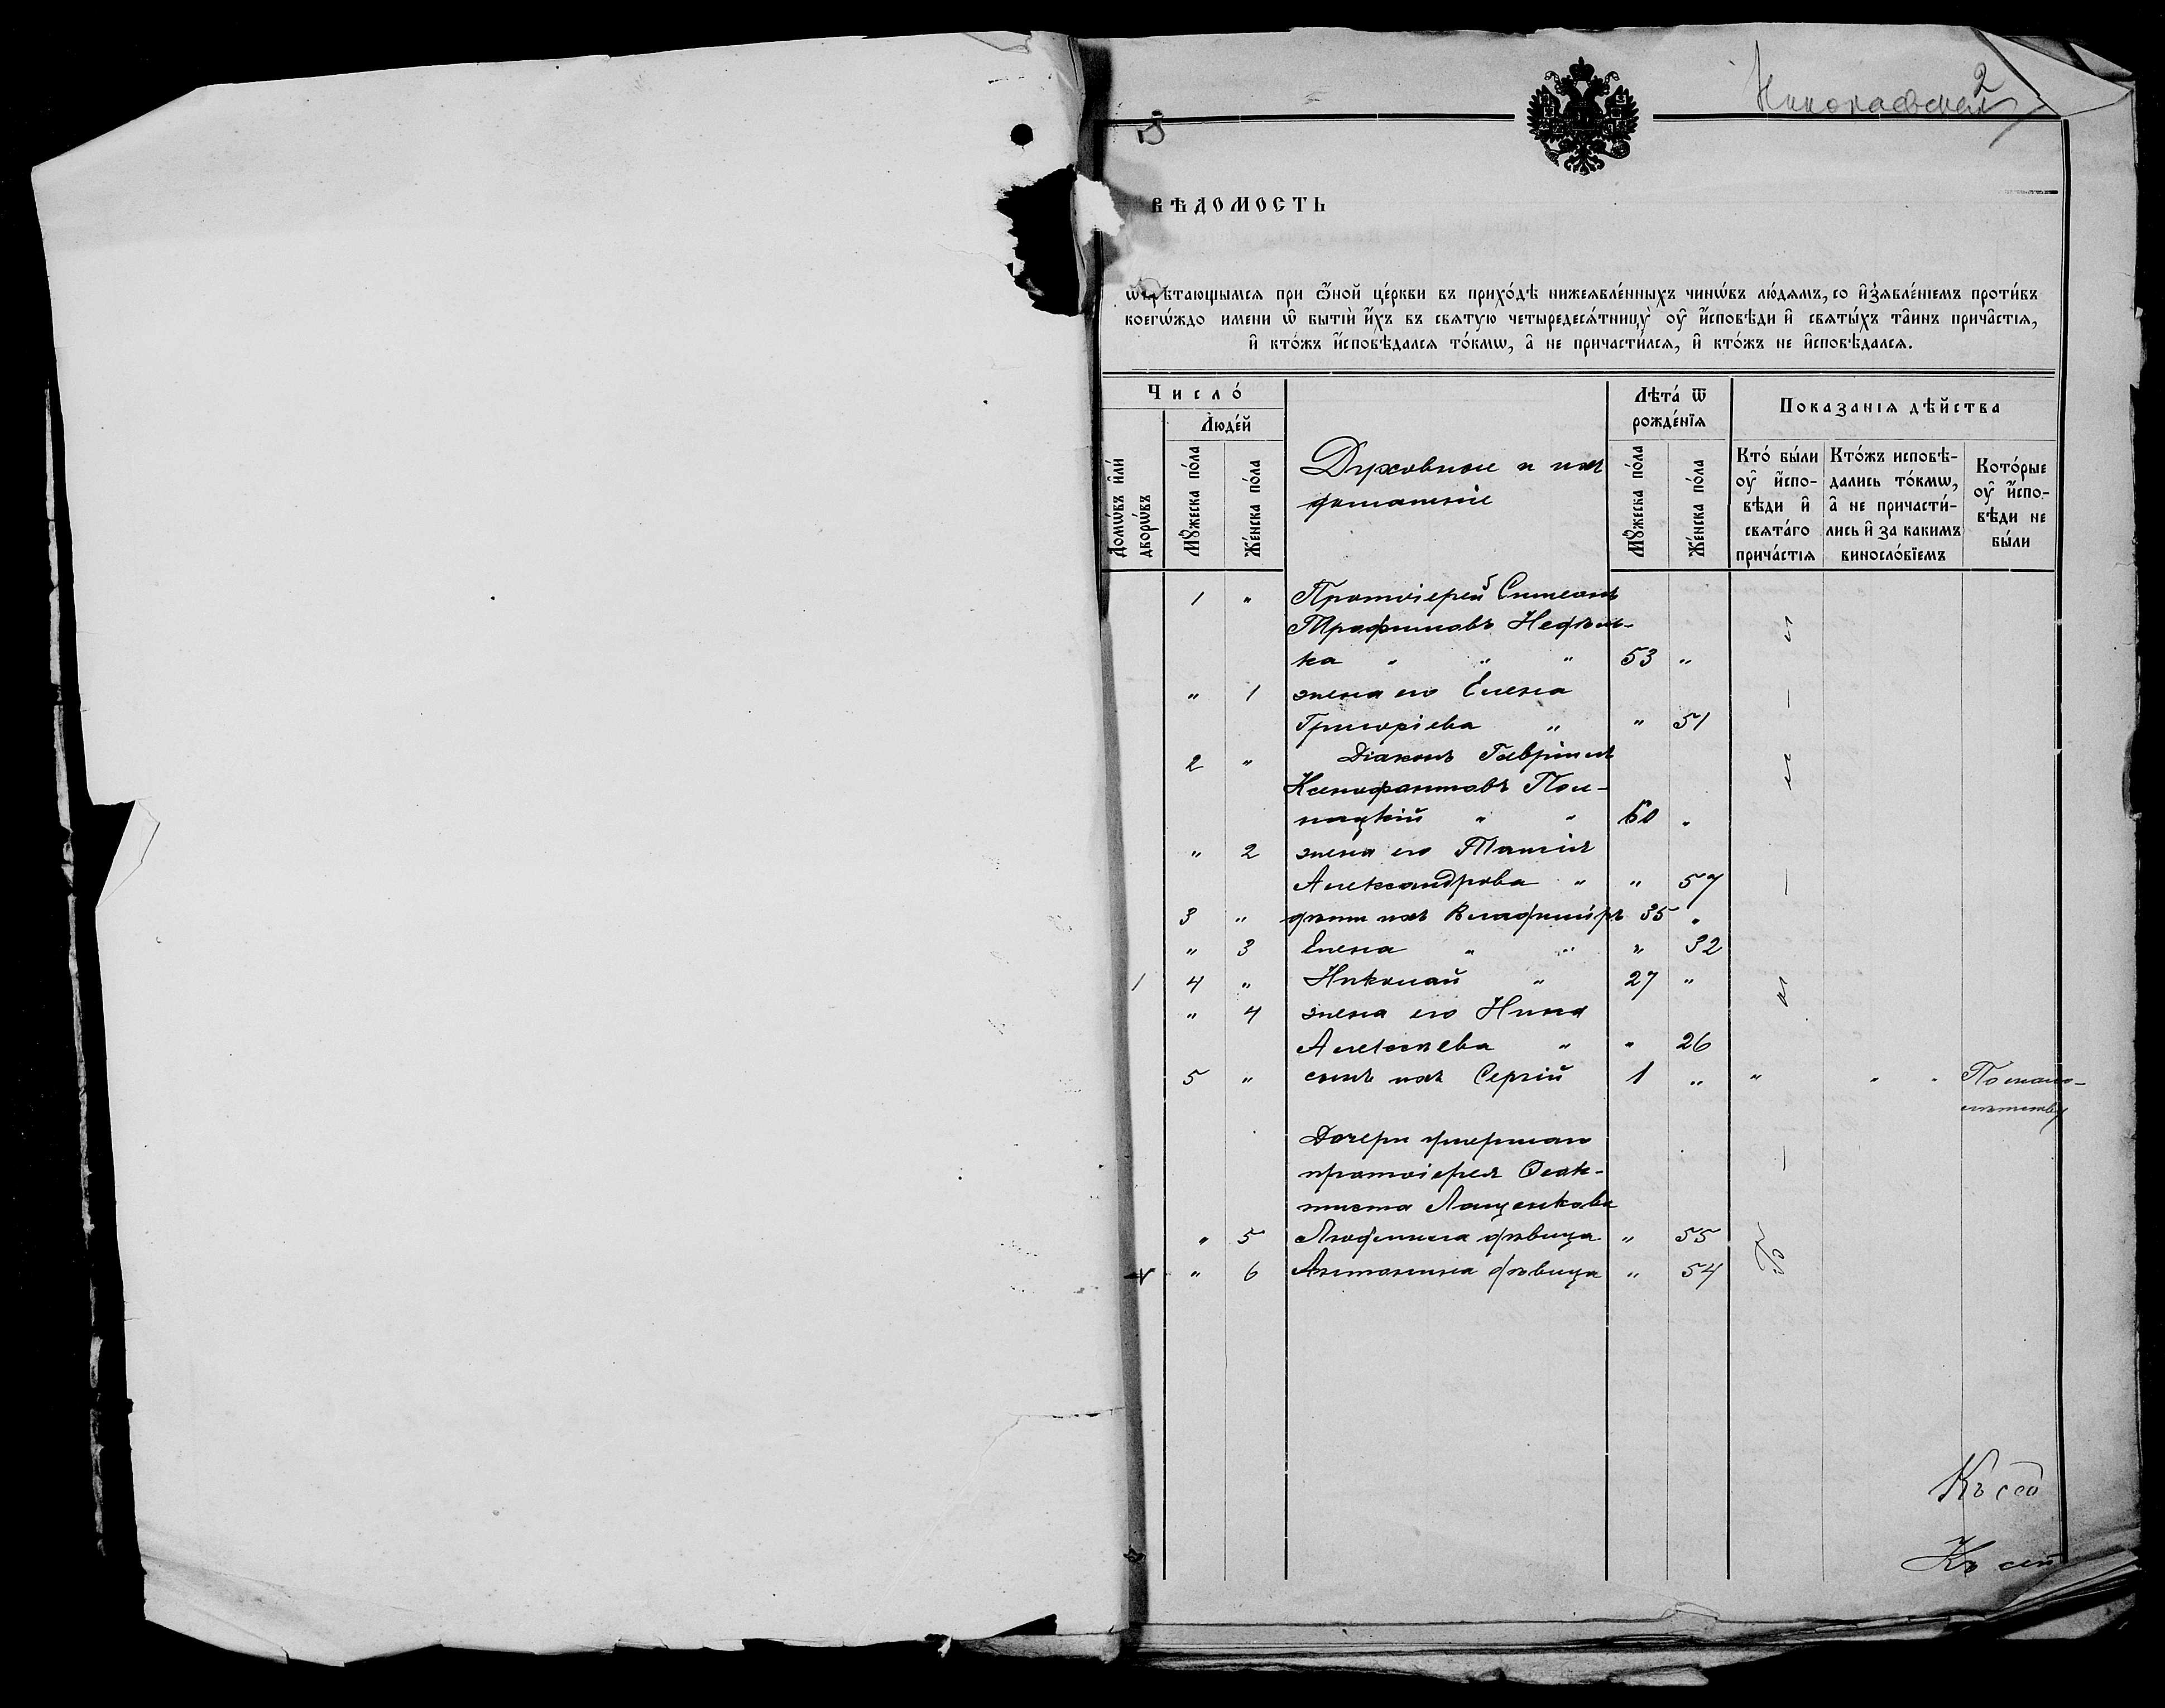 2
Николаевская
ВѢДОМОСТЬ
ѡбрѣтающымся при ѻ҆́ной це́ркви въ прихо́дѣ нижеявле́нныхъ чинѡ́въ лю́дямъ, со и҆з̾явле́нїемъ проти́въ
коегѡ́ждо имени ѡ҆ бытїѝ и҆́хъ въ святую четыредеся́тницу̀ оу҆ и҆́сповѣди и҆ святы́хъ та̑инъ прича̑стїя,
и҆ кто́жъ и҆сповѣ́дался то́кмѡ, а҆ не причасти́лся, и҆ кто́жъ не и҆сповѣ́дался.
Число́
Люде́й
Домѡ́въ и҆лѝ дворѡ́въ
Мꙋ́жеска по́ла
Же́нска по́ла
Духовные и ихъ
домашніе
Лѣта́ ѿ
рожде́нїя
Мꙋ́жеска по́ла
Же́нска по́ла
Показанїя дѣйства
Кто́ бы́ли
оу҆ и҆́спо-
вѣди и҆
свята́го
прича́стїя
Кто́жъ исповѣ-
дались то́кмѡ,
а҆ не причасти́-
лись и҆ за какимъ
винословїемъ
Кото́рые
оу҆ и҆́спо-
вѣди не
бы́ли
1 " Протоіерей Симеонъ
Трофимовъ Недѣль-
ка " " " 53 "
" 1 жена его Елена
Григоріева " " 51
2 " Діаконъ Гавріилъ
Ксенофонтовъ Пол-
ницкій " " 60 "
" 2 жена его Таисія
Александрова " " 57
3 " дѣти ихъ Владиміръ 35 "
" 3 Елена " " " 32
1 4 " Николай " 27 "
" 4 жена его Нина
Алексѣева " " 26
5 " сынъ ихъ Сергій 1 " " " " По мало-
лѣтству
Дочери умершаго
протоіерея Ѳеок-
тиста Лащенкова
" 5 Людмила дѣвица " 55
" 6 Антонина дѣвица " 54
Къ сей
Къ сей